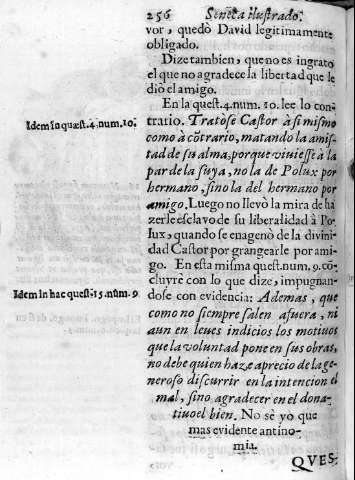 256 Seneca ilustrado.
vor, quedò David legitimamente
obligado.
Dize tambien, que no es ingrato
el que no agradece la libertad que le
diò el amigo.
En la quest.4.num.10. lee lo con-
trario. Tratòse Castor à si mismo
Idem in quæst.4.num.10.
como à cōtrario, matando la amis-
tad de su alma, porque viuiesse à la
par de la suya, no la de Polux por
hermano, sino la del hermano por
amigo. Luego no llevò la mira de ha
zerle esclavo de su liberalidad à Po-
lux, quando se enagenò de la divini-
dad Castor por grangearle por ami-
go. En esta misma quest.num.9.cō-
cluyrè con lo que dize, impugnan-
Idem in hac quest.15.nūm.9.
dose con evidencia: Ademas, que
como no siempre salen afuera, ni
aun en leues indicios los motiuos
que la voluntad pone en sus obras,
no debe quien haze aprecio de lo ge-
neroso discurrir en la intencion el
mal, sino agradecer en el dona-
tiuo el bien. No sè yo que
mas evidente antino-
mia.
QVES-